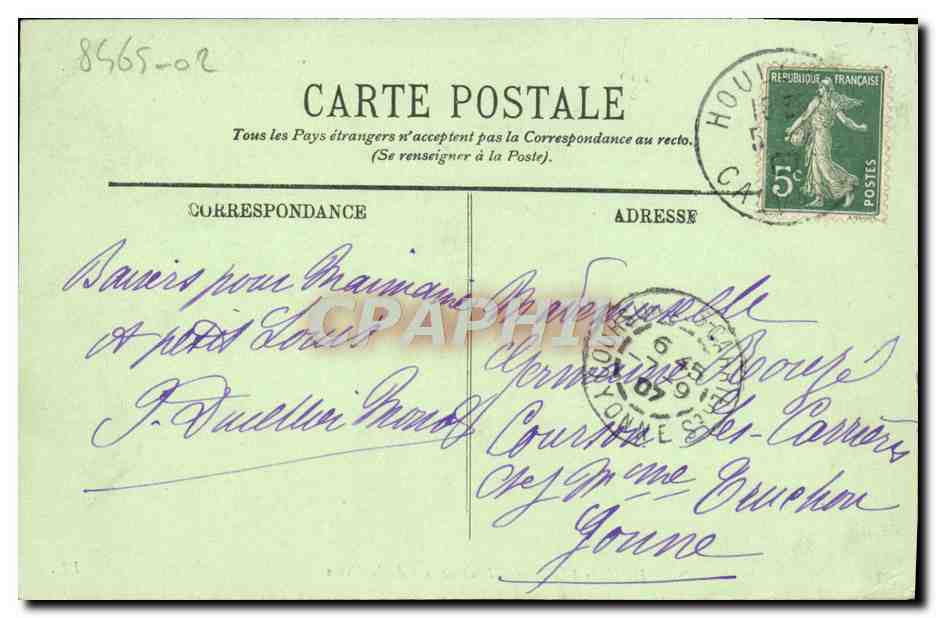 8565-02
CARTE POSTALE
Tous les Pays étrangers n'acceptent pas la Correspondance au recto.
(Se renseigner à la Poste).
RÉPUBLIQUE FRANÇAISE
5c
POSTES
HOUL
CA
CORRESPONDANCE
ADRESSE
Baisers pour Maimaine
et petit Louis
Mademoiselle
Germaine Rouzé
Courson les-Carrières
chez Mme Truchon
Yonne
CPAPHIL
6 45
7 9
07
YONNE